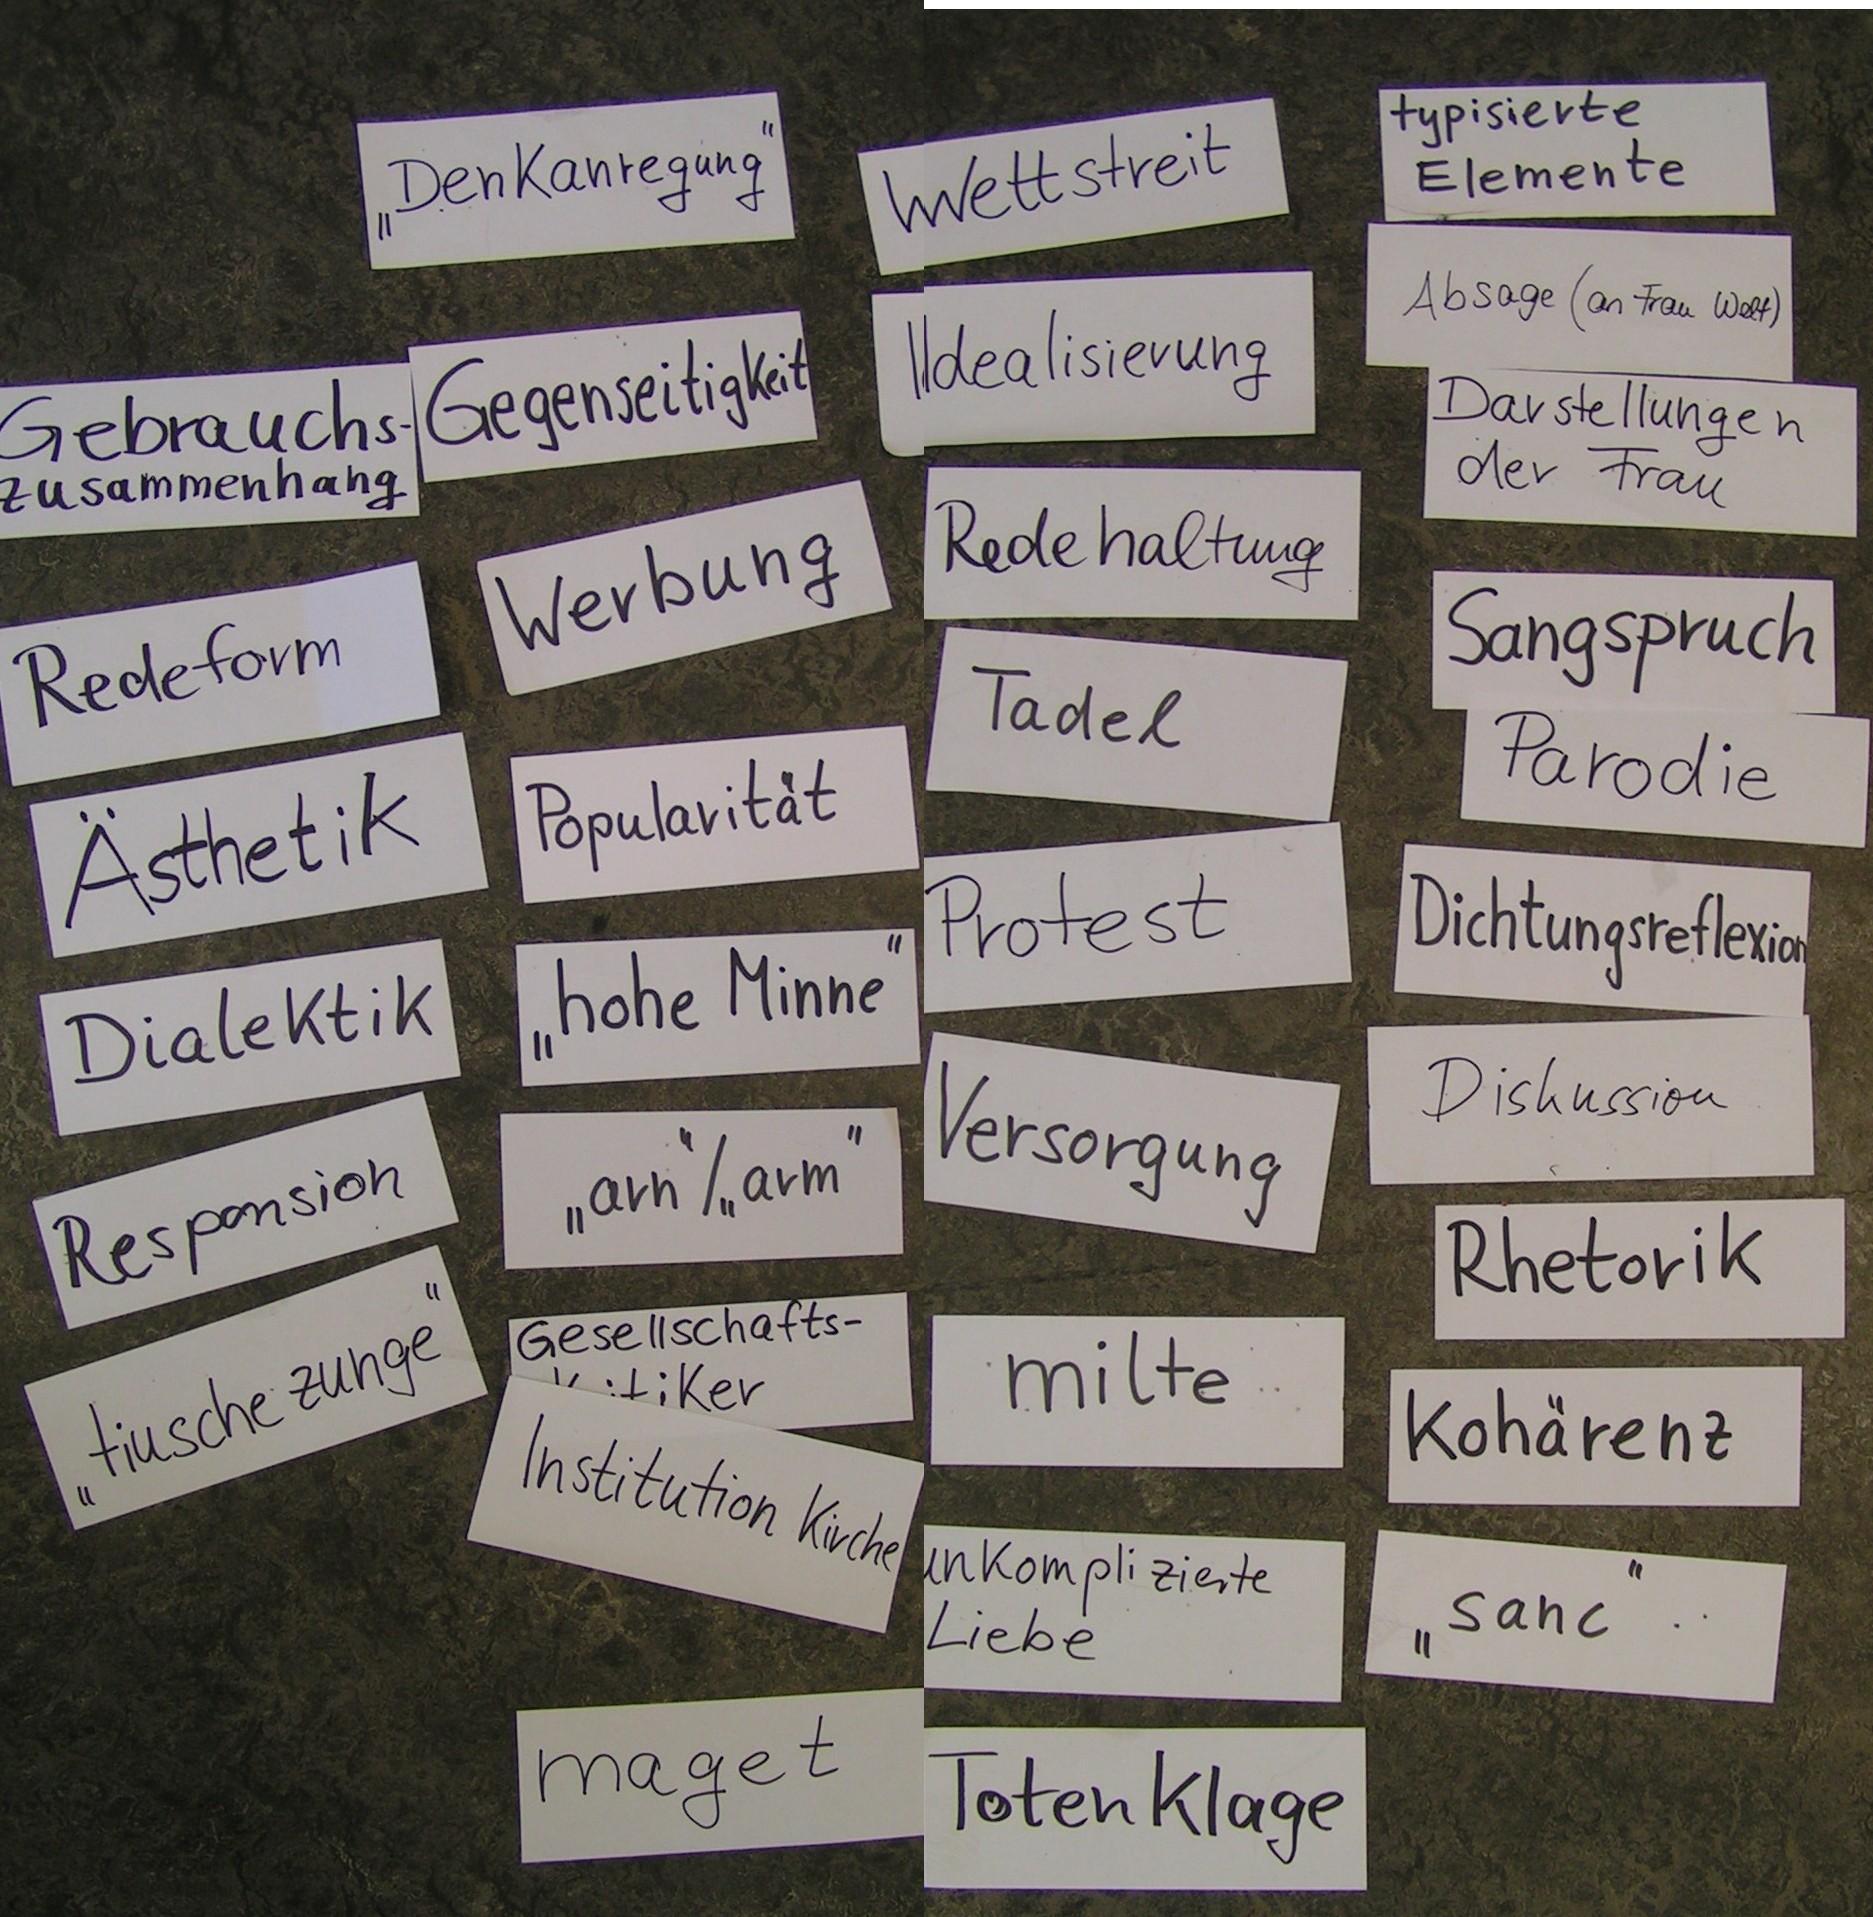 „Denkanregung“
Gebrauchs-
zusammenhang
Gegenseitigkeit
Redeform
Werbung
Ästhetik
Popularität
Dialektik
„hohe Minne“
Responsion
„arn“/„arm“
„tiusche zunge“
Gesellschafts-
kritiker
Institution Kirche
maget
Wettstreit
Idealisierung
Redehaltung
Tadel
Protest
Versorgung
milte
unkomplizierte
Liebe
Totenklage
typisierte
Elemente
Absage (an Frau Welt)
Darstellungen
der Frau
Sangspruch
Parodie
Dichtungsreflexion
Diskussion
Rhetorik
Kohärenz
„sanc“